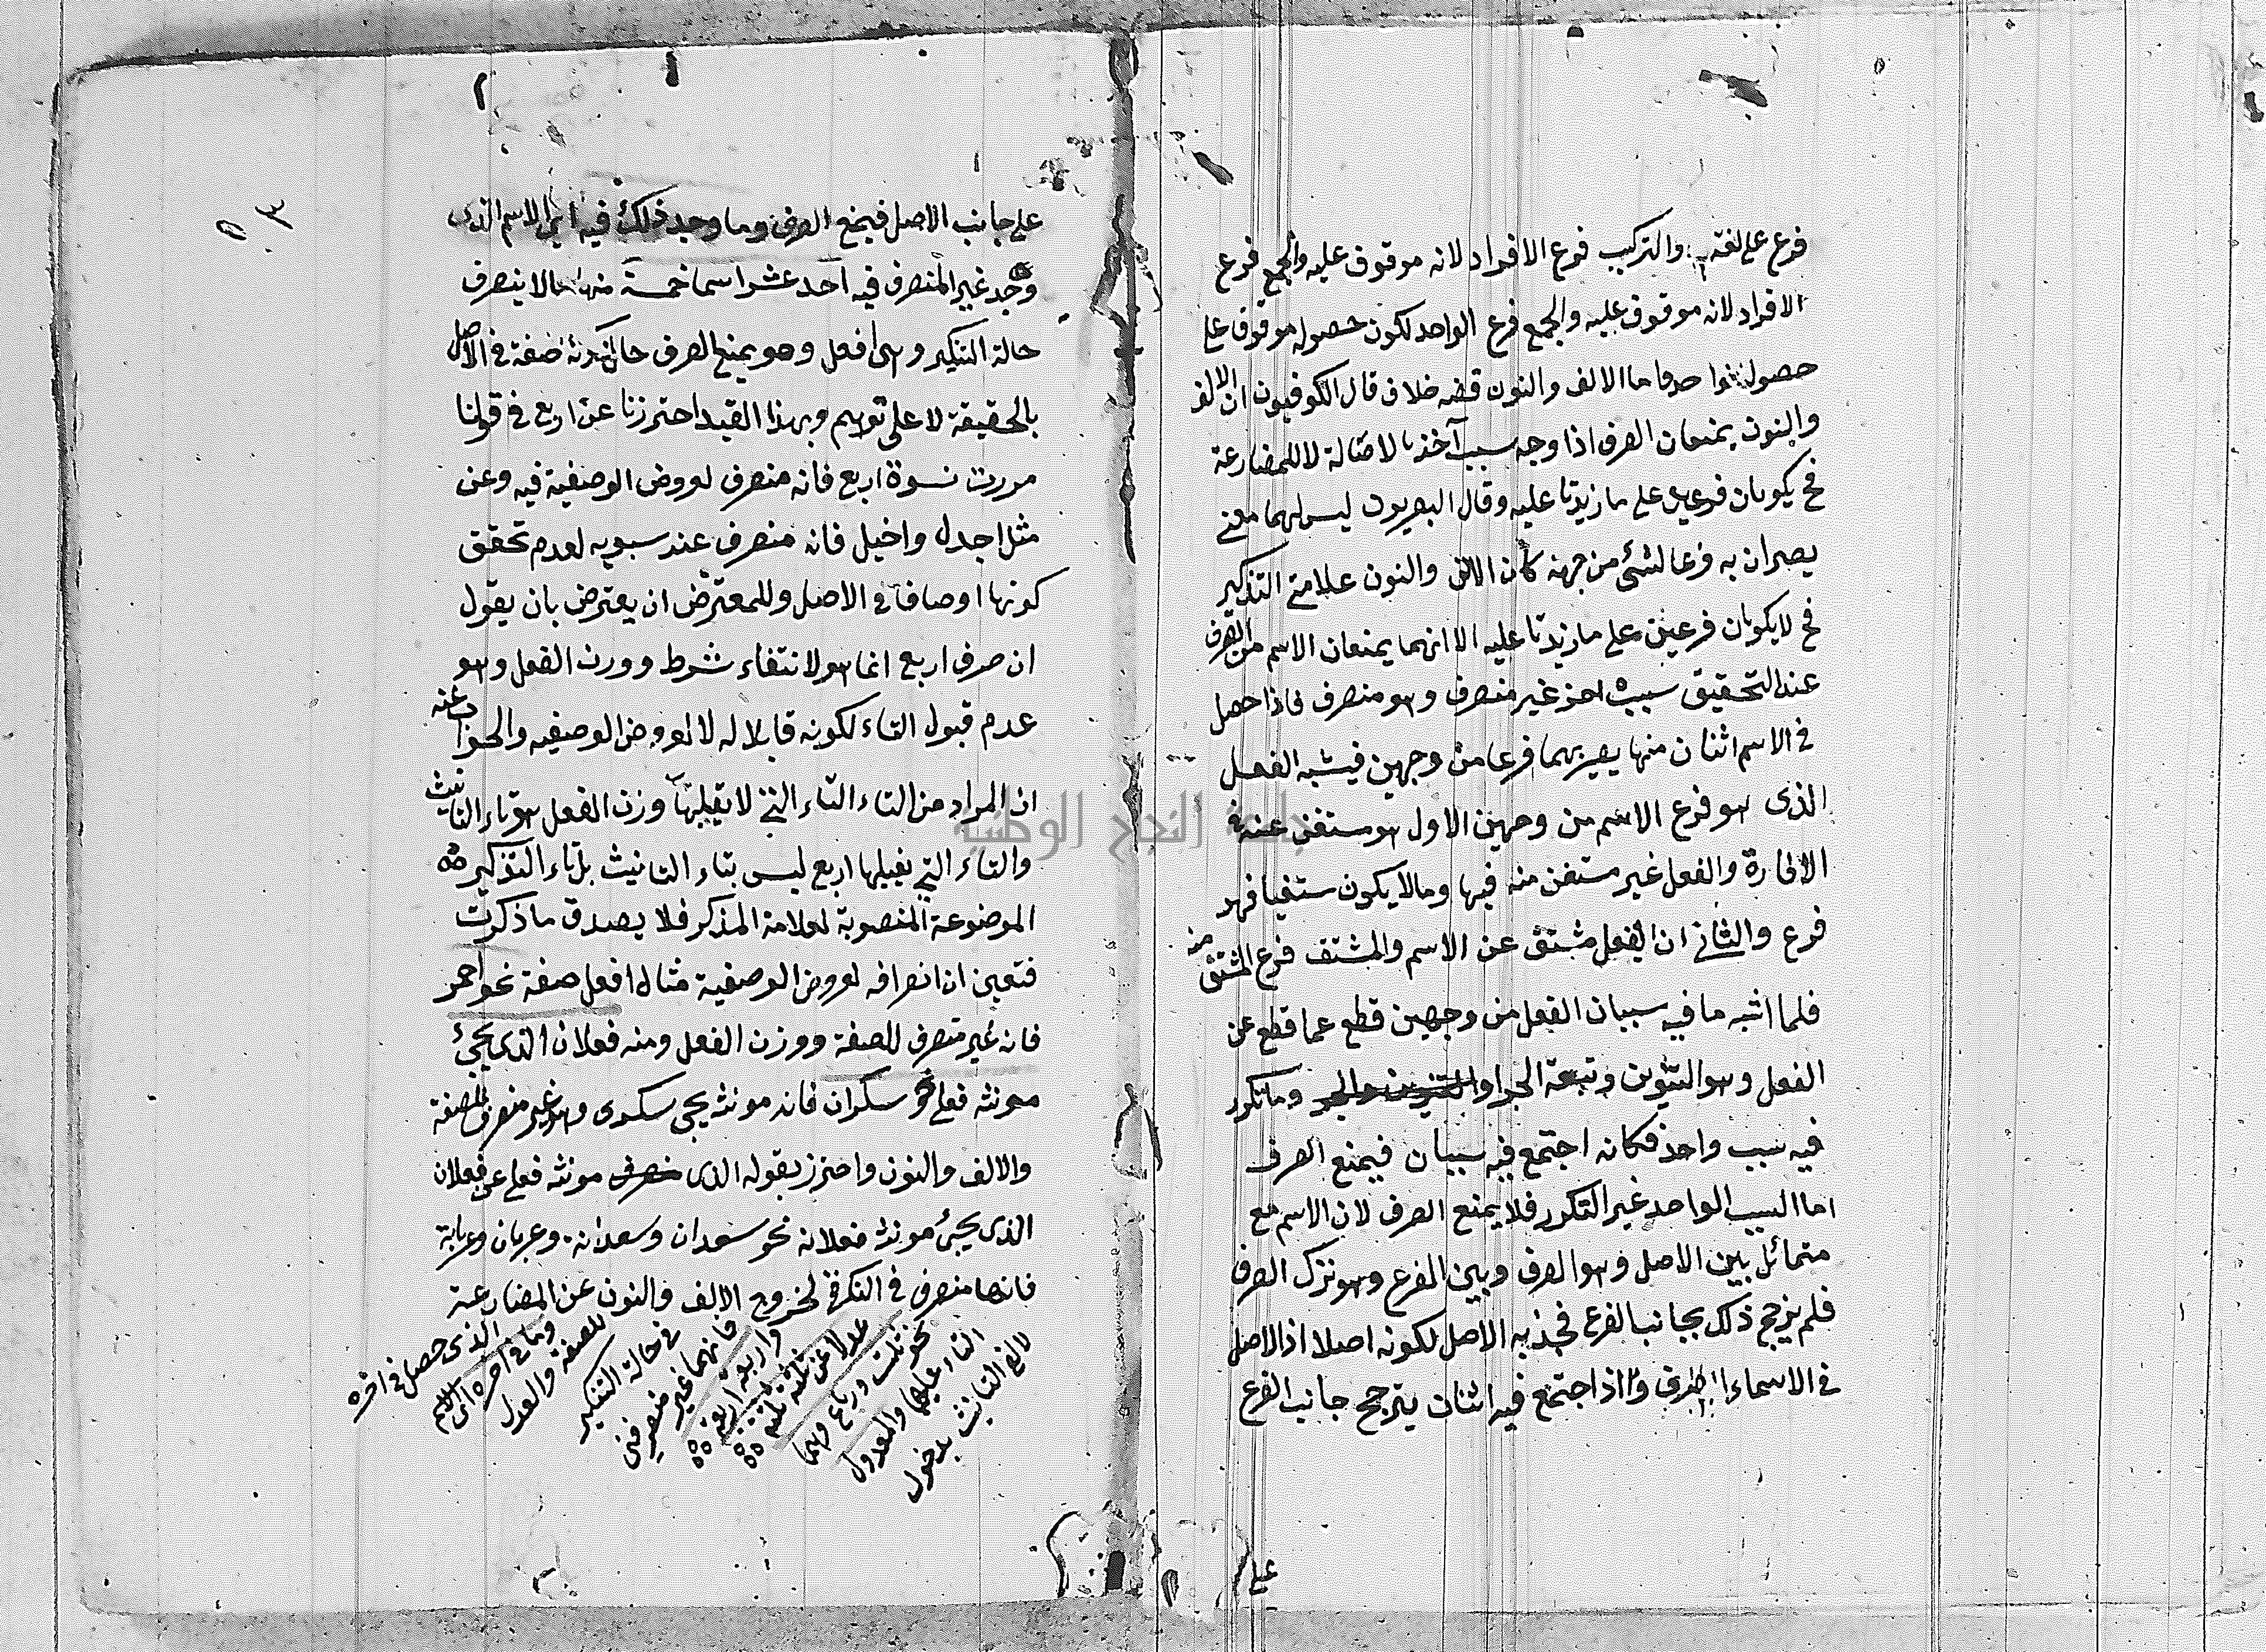 فرع على لغته والتركيب فرع الافراد لانه موقوف عليه والجمع فرع
الافراد لانه موقوف عليه والجمع فرع الواحد لكون حصوله موقوق على
حصول واحد واما الالف والنون ففيه خلاف قال الكوفيون ان الالف
والنون يمنعان الصرف اذا وجد سبب آخر لا للمضارعة
فح يكونان فرعين على ما زيدتا عليه وقال البصريون ليس لهما معنى
يصيران به فرعا لشئ من جهته كأن الالف والنون علامتى التذكير
فح لا يكونان فرعين على ما زيدتا عليه الا انهما يمنعان الاسم من الصرف
عند التحقيق سبب غير منصرف وهو منصرف فاذا حصل
فى الاسم اثنان منها يصير بهما فرعا من وجهين فيشبه الفعل
الذى هو فرع الاسم من وجهين الاول هو مستغن عنه فى
الافادة والفعل غير مستغن منه فيها وما لا يكون مستغنيا فهو
فرع والثانى ان الفعل مشتق عن الاسم والمشتق فرع المشتق منه
فلما اشبه ما فيه سببان الفعل من وجهين قطع عما قطع عن
الفعل وهو التنوين وتبعه الجر او التنوين والجر وما تكرر
فيه سبب واحد فكانه اجتمع فيه سببان فيمنع الصرف
اما السبب الواحد غير التكرر فلا يمنع الصرف لان الاسم مع
متماثل بين الاصل وهو الصرف وبين الفرع وهو ترك الصرف
فلم يرجح ذلك بجانب الفرع فجذبه الاصل لكونه اصلا اذ الاصل
فى الاسماء الصرف واذا اجتمع فيه اثنان يترجح جانب الفرع
على
٥٣
على جانب الاصل فيمنع الصرف وما وجد ذلك فيه اى الاسم الذى
وجد غير المنصرف فيه احد عشر اسما خمسة منها ما لا ينصرف
حالة التنكير وهى افعل وهو يمنع الصرف حال كونه صفة فى الاصل
بالحقيقة لا على توهم وبهذا القيد احترزنا عن اربع فى قولنا
مررت بنسوة اربع فانه منصرف لعروض الوصفية فيه وعن
مثل اجدل واخيل فانه منصرف عند سبويه لعدم تحقق
كونها اوصافا فى الاصل وللمعترض ان يعترض بان يقول
ان صرف اربع انما هو لانتفاء شرط وورن الفعل وهو
عدم قبول التاء لكونه قابلا له لا لعروض الوصفيه والجواب عنه
ان المراد من التاء التاء التى لا يقبلها وزن الفعل هو تاء التانيث
والتاء التى يقبلها اربع ليس بتاء التانيث بل تاء التذكير
الموضوعة المنصوبة لعلامة المذكر فلا يصدق ما ذكرت
فتعين ان انصرافه لعروض الوصفية مثال افعل صفة نحو احمر
فانه غير منصرف للصفة ووزن الفعل ومنه فعلان الذى يجئ
مونثه فعلى نحو سكران فانه مونثه يجى سكرى وهو غير منصرف للصفة
والالف والنون واحترز بقوله الذى منصرف مونثه فعلى عن فعلان
الذى يجئ مونثه فعلانة نحو سعدان وسعدانه وعريان وعريانة
فانها منصرف فى النكرة لخروج الالف والنون عن المضارعة
لالف التانيث بدخول
التاء عليها والمعدول
نحو ثلث ورباع وهما
عدلا عن ثلثة ثلثة
واربعة اربعة
فانهما غير منصرفين
فى حالة التنكير
للصفة والعدل
وما فى اخره اى الاسم
الذى حصل فى اخره
جامعة النجاح الوطنية